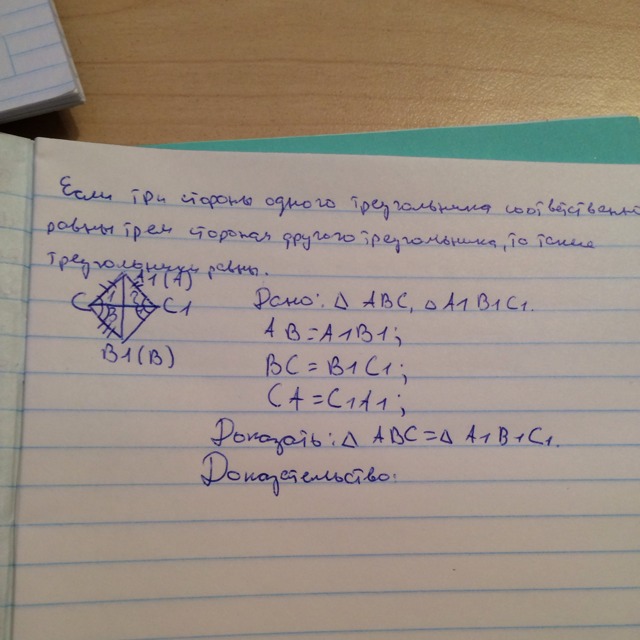 Если три стороны одного треугольника соответственно
равны трем сторонам другого треугольника, то такие
треугольники равны.
A1(A)
C 1 2 C1
3 4
B1(B)
Дано: △ ABC, △ A1B1C1.
AB=A1B1;
BC=B1C1;
CA=C1A1;
Доказать: △ ABC=△ A1B1C1.
Доказательство: